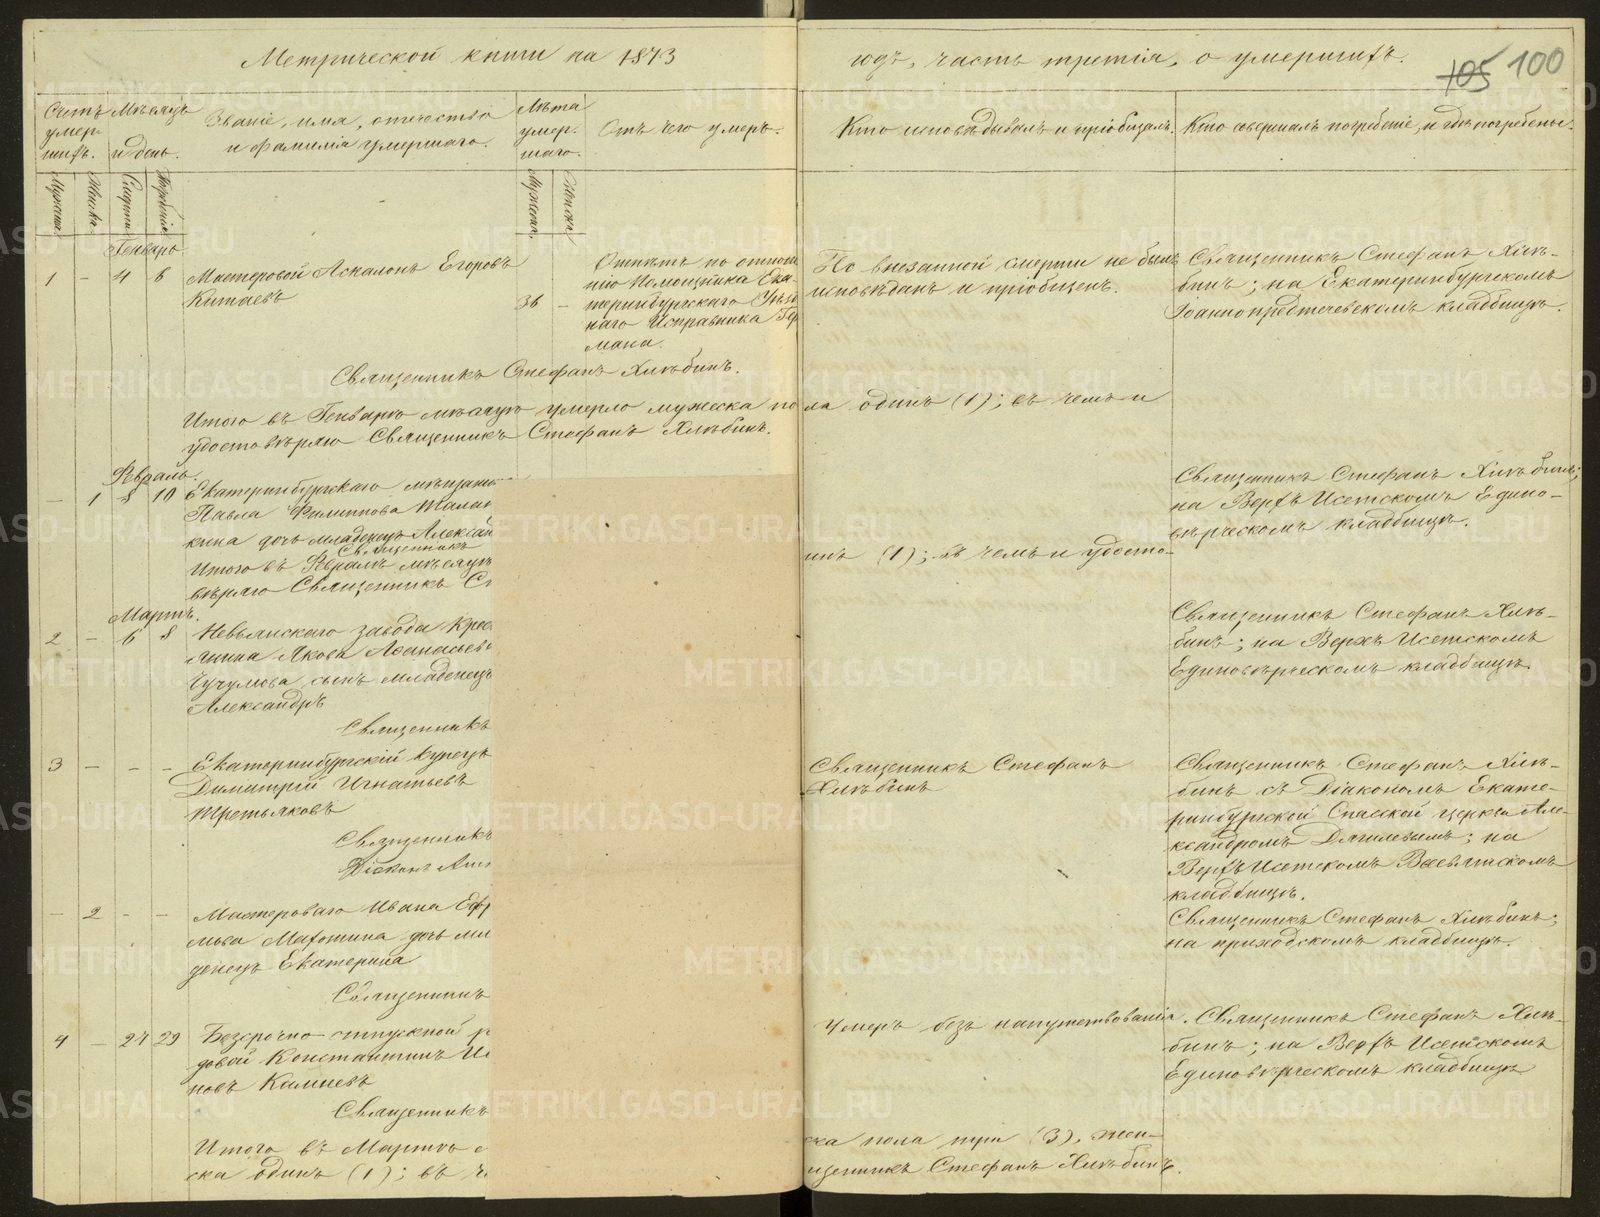 Метрической книги на 1873
годъ, часть третія, о умершихъ.
105 100
Счетъ умер-
шихъ.
Мѣсяцъ
и день.
Званіе, имя, отчество
и фамилія умершаго.
Лѣта
умер-
шаго.
Отъ чего умеръ.
Кто исповѣдывалъ и пріобщалъ.
Кто совершалъ погребеніе, и гдѣ погребены.
Мужска.
Женска.
Смерти
Погребенія
Мужска.
Женска.
Генварь
1 - 4 6 Мастеровой Аскалонъ Егоровъ
Китаевъ
36 -
Отпѣтъ по отноше
нію Помощника Ека-
теринбургскаго Уѣзд
наго Исправника Гер
мана.
По внезапной смерти не былъ
исповѣданъ и пріобщенъ.
Священникъ Стефанъ Хлѣ-
бинъ; на Екатеринбургскомъ
Іоаннопредтечевскомъ кладбищѣ.
Священникъ Стефанъ Хлѣбинъ.
Итого въ Генварѣ мѣсяцѣ умерло мужеска пола одинъ (1); въ чемъ и
удостовѣряю Священникъ Стефанъ Хлѣбинъ.
Февраль.
- 1 8 10 Екатеринбургскаго мѣщани
Павла Филиппова
кина дочь младенецъ Алексан
Священникъ
Итого въ Февралѣ мѣсяцѣ
вѣряю Священникъ Ст
инъ (1); въ чемъ и удосто-
Священникъ Стефанъ Хлѣбинъ;
на Верхъ Исетскомъ Едино-
вѣрческомъ кладбищѣ.
Мартъ.
2 - 6 8 Невьянскаго завода Крес
янина Якова Аѳанасьева
Чучумова сынъ младенецъ
Александръ
Священникъ
Священникъ Стефанъ Хлѣ-
бинъ; на Верхъ Исетскомъ
Единовѣрческомъ кладбищѣ.
3 - - - Екатеринбургскій Купецъ
Димитрій Игнатьевъ
Третьяковъ
Священникъ
Діаконъ Але
Священникъ Стефанъ
Хлѣбинъ
Священникъ Стефанъ Хлѣ-
бинъ съ Діакономъ Екате-
ринбургской Спасской церкви Але-
ксандромъ Дягилевымъ; на
Верхъ Исетскомъ Всесвятскомъ
кладбищѣ.
- 2 - - Мастероваго Ивана Ефр
мова дочь мла
денецъ Екатерина
Священникъ
Священникъ Стефанъ Хлѣбинъ;
на приходскомъ кладбищѣ.
4 - 27 29 Безсрочно-отпускной р
довой Константинъ Ив
новъ
Священникъ
Умеръ безъ напутствованія.
Священникъ Стефанъ Хлѣ-
бинъ; на Верхъ Исетскомъ
Единовѣрческомъ кладбищѣ
Итого въ Мартѣ м
ска одинъ (1); въ че
ска пола три (3), жен-
щенникъ Стефанъ Хлѣбинъ.
METRIKI.GASO-URAL.RU